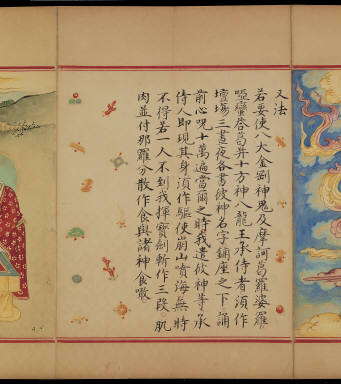 又法
若要使八大金剛神鬼及摩訶葛羅婆羅
啞蠻答葛并十方神八龍王承侍者須作
壇塲三晝夜各書彼神名字鋪座之下誦
前心呪十萬遍當爾之時我遣彼神等承
侍人即現其身須作驅使崩山噴海無時
不得若一人不到我揮寶劍斬作三段肌
肉並付那羅分散作食與諸神食噉